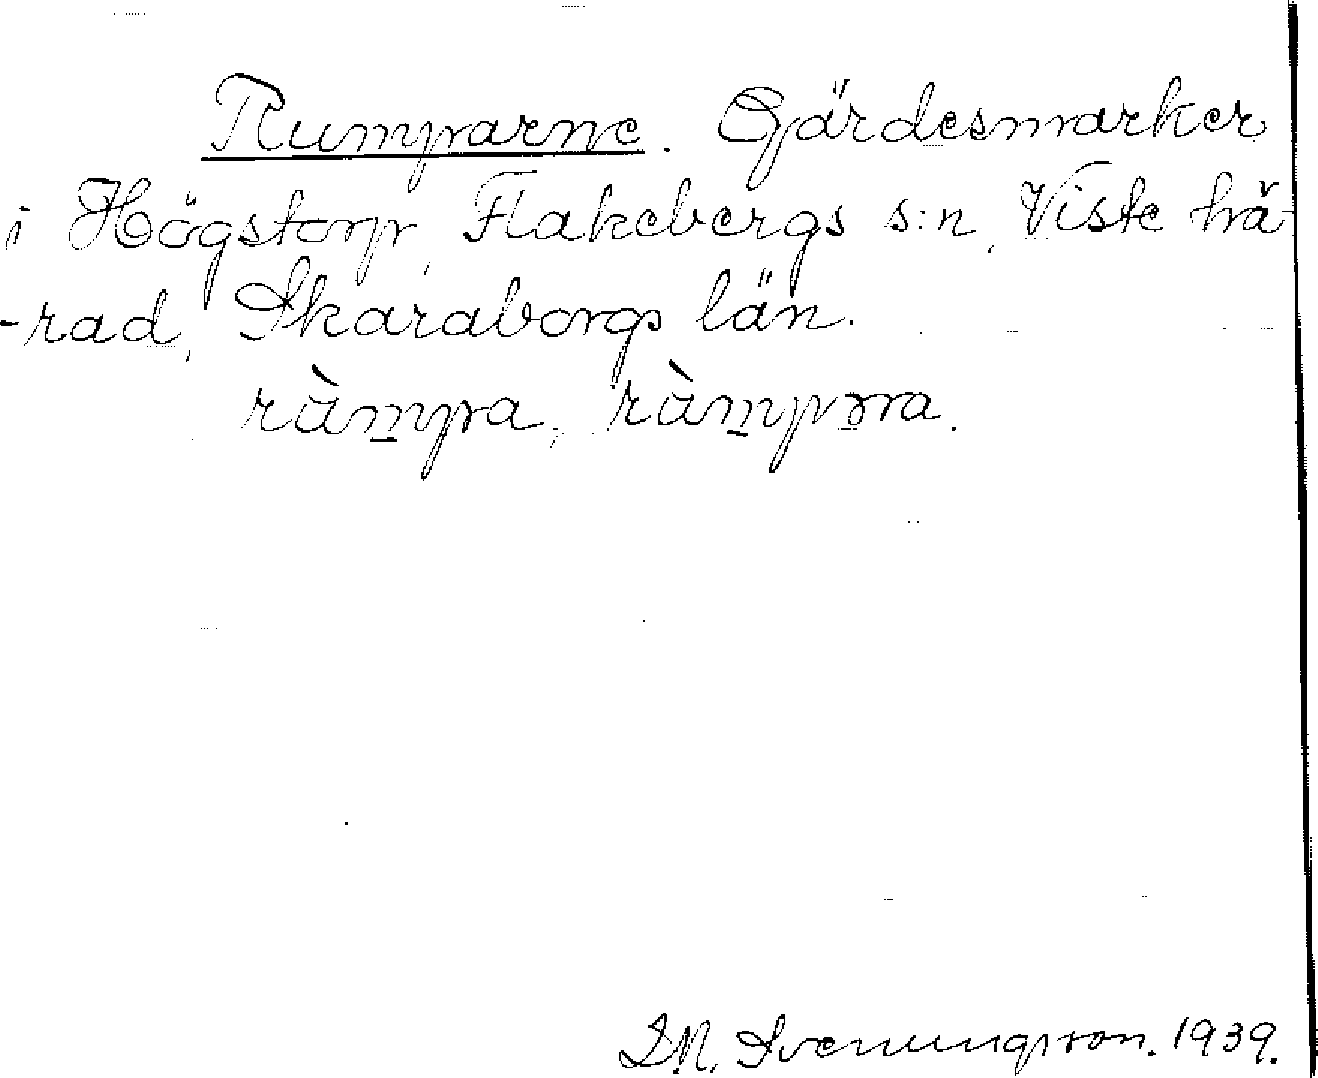 Rumparne. Gärdesmarker
i Högstorp, Flakebergs s:n, Viste hä-
-rad, Skaraborgs län.
rùmpa, rùmpɔra.
D.N. Svenungsson. 1939.